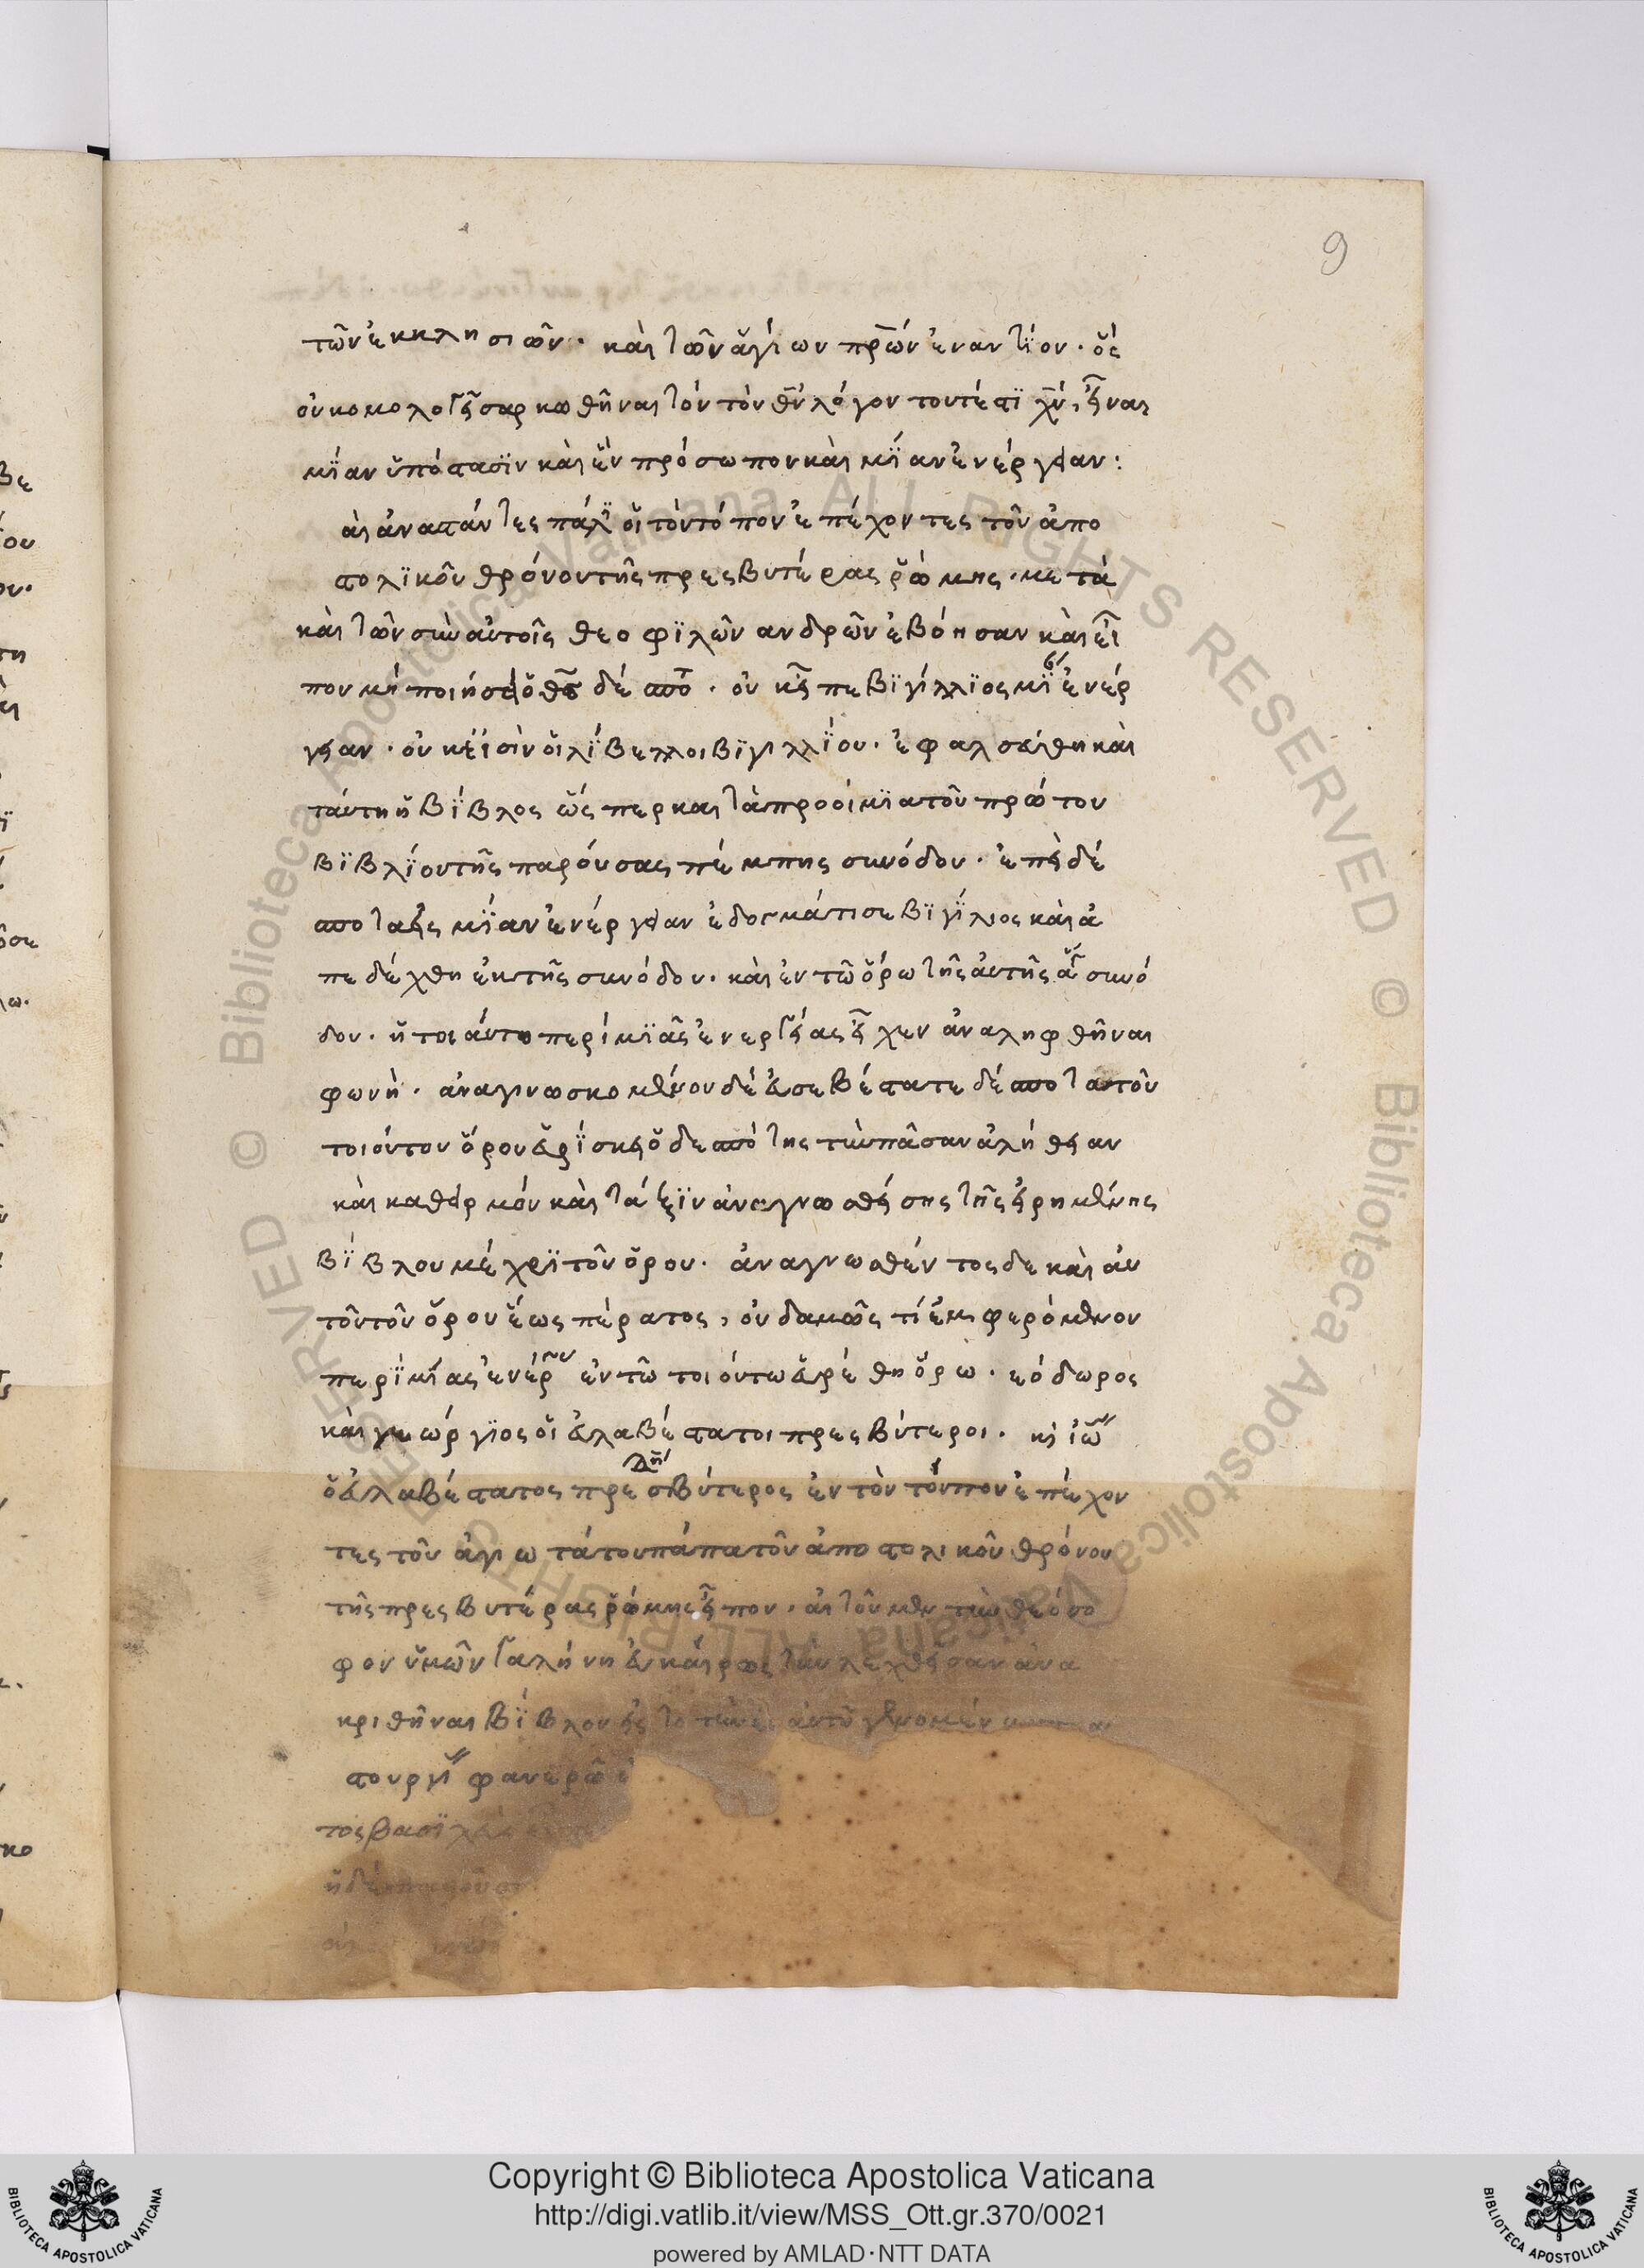 9
τῶν ἐκκλησιῶν. καὶ τῶν ἁγίων πρῶν ἐναντίον. ὅς
οὐκ ὁμολογεῖ σαρκωθῆναι τόν τὸν θν λόγον τουτέστι χν, εἶναι
μίαν ὑπόστασϊν καὶ ἕν πρόσωπον καὶ μίαν ἐνέργειαν:
ἀι ἀναστάντες πάλϊ οἱ τὸν τόπον ἐπέχοντες τοῦ ἀπο
στολϊκοῦ θρόνου τῆς πρεσβυτέρας ῥώμης. μετὰ
καὶ τῶν σὺν αὐτοῖς θεοφϊλῶν ανδρῶν ἐβόησαν καὶ εἶ
πον μή ποιήσει ὁ θς δέσποτ. οὐκ εἶπε βϊγίλλϊος μϊ ἐνέρ
γειαν. οὐκ εἰσὶν οἱ λίβελλοι βϊγιλλΐου. ἐφαλσεύθη καὶ
ταύτη ἡ βΐβλος ὥς περ και τὰ προοίμϊα τοῦ πρώτου
βϊβλΐου τῆς παρούσας πέμπης συνόδου. ἐπεὶ δέ
σποταὶς μΐαν ἐνέργειαν ἐδογμάτισε βϊγΐλιος καὶ ἀ
πεδέχθη ἐκ τῆς συνόδου. καὶ ἐν τῶ ὅρω τῆς ἀυτῆς ἁγ συνό
δου. ἡ τοιάυτη περί μϊᾶς ἐνεργείας εἶχεν ἀναληφθῆναι
φωνὴ. ἀναγινωσκομένου δέ εὐσεβέστατε δέσποτα τοῦ
τοιούτου ὅρου εὑρΐσκει ὁ δεσπότης τὴν πᾶσαν ἀλήθειαν
καὶ καθειρμόν καὶ τάξϊν ἀναγνωσθείσης τῆς εἰρημένης
βΐβλου μέχρϊ τοῦ ὅρου. ἀναγνωσθέντος δε καὶ ἀυ
τοῦ τοῦ ὅρου ἕως πέρατος, οὐδαμῶς τί ἐμφερόμενον
περΐ μΐας ἐνέργ ἐν τῶ τοιούτω εὑρέθη ὅρω. εόδωρος
καὶ γεώργϊος οἱ ἐυλαβέστατοι πρεσβύτεροι. κὶ ἰῶ
ὁ ἐυλαβέστατος πρεσβύτερος ἐν τὸν τόνπον ἐπέχον
τες τοῦ ἁγιωτάτου πάπα τοῦ ἀποστολικοῦ θρόνου
τῆς πρεσβυτέρας ῥώμης εἶπον. ἀιτοῦμεν τὴν θεόσο
φον ὑμῶν γαλήνη εὐκαίρως τὴν λεχθεῖσαν ἀνα
κριθῆναι βΐβλον εἰς το
στουργϊ φανερῶ
τος βασϊλ
ἡ δὲ
Copyright © Biblioteca Apostolica Vaticana
http://digi.vatlib.it/view/MSS_Ott.gr.370/0021
powered by AMLAD·NTT DATA
BIBLIOTECA APOSTOLICA VATICANA
BIBLIOTECA APOSTOLICA VATICANA
© Biblioteca Apostolica Vaticana ALL RIGHTS RESERVED © Biblioteca Apostolica Vaticana ALL RIGHTS RESERVED